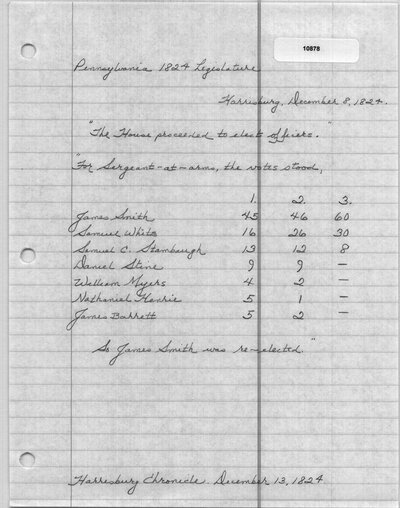 10878
Pennsylvania 1824 Legislature
Harrisburg, December 8, 1824.
"The House proceeded to elect officers."
"For Sergeant-at-arms, the votes stood,
1. 2. 3.
James Smith 45 46 60
Samuel White 16 26 30
Samuel C. Stambaugh 13 12 8
Daniel Stine 9 9 —
William Myers 4 2 —
Nathaniel Henrie 5 1 —
James Barrett 5 2 —
So James Smith was re-elected."
Harrisburg Chronicle December 13, 1824